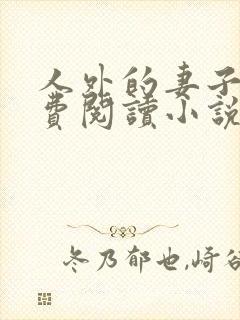 人外的妻子
費閱讀小說
冬乃郁也,崎谷